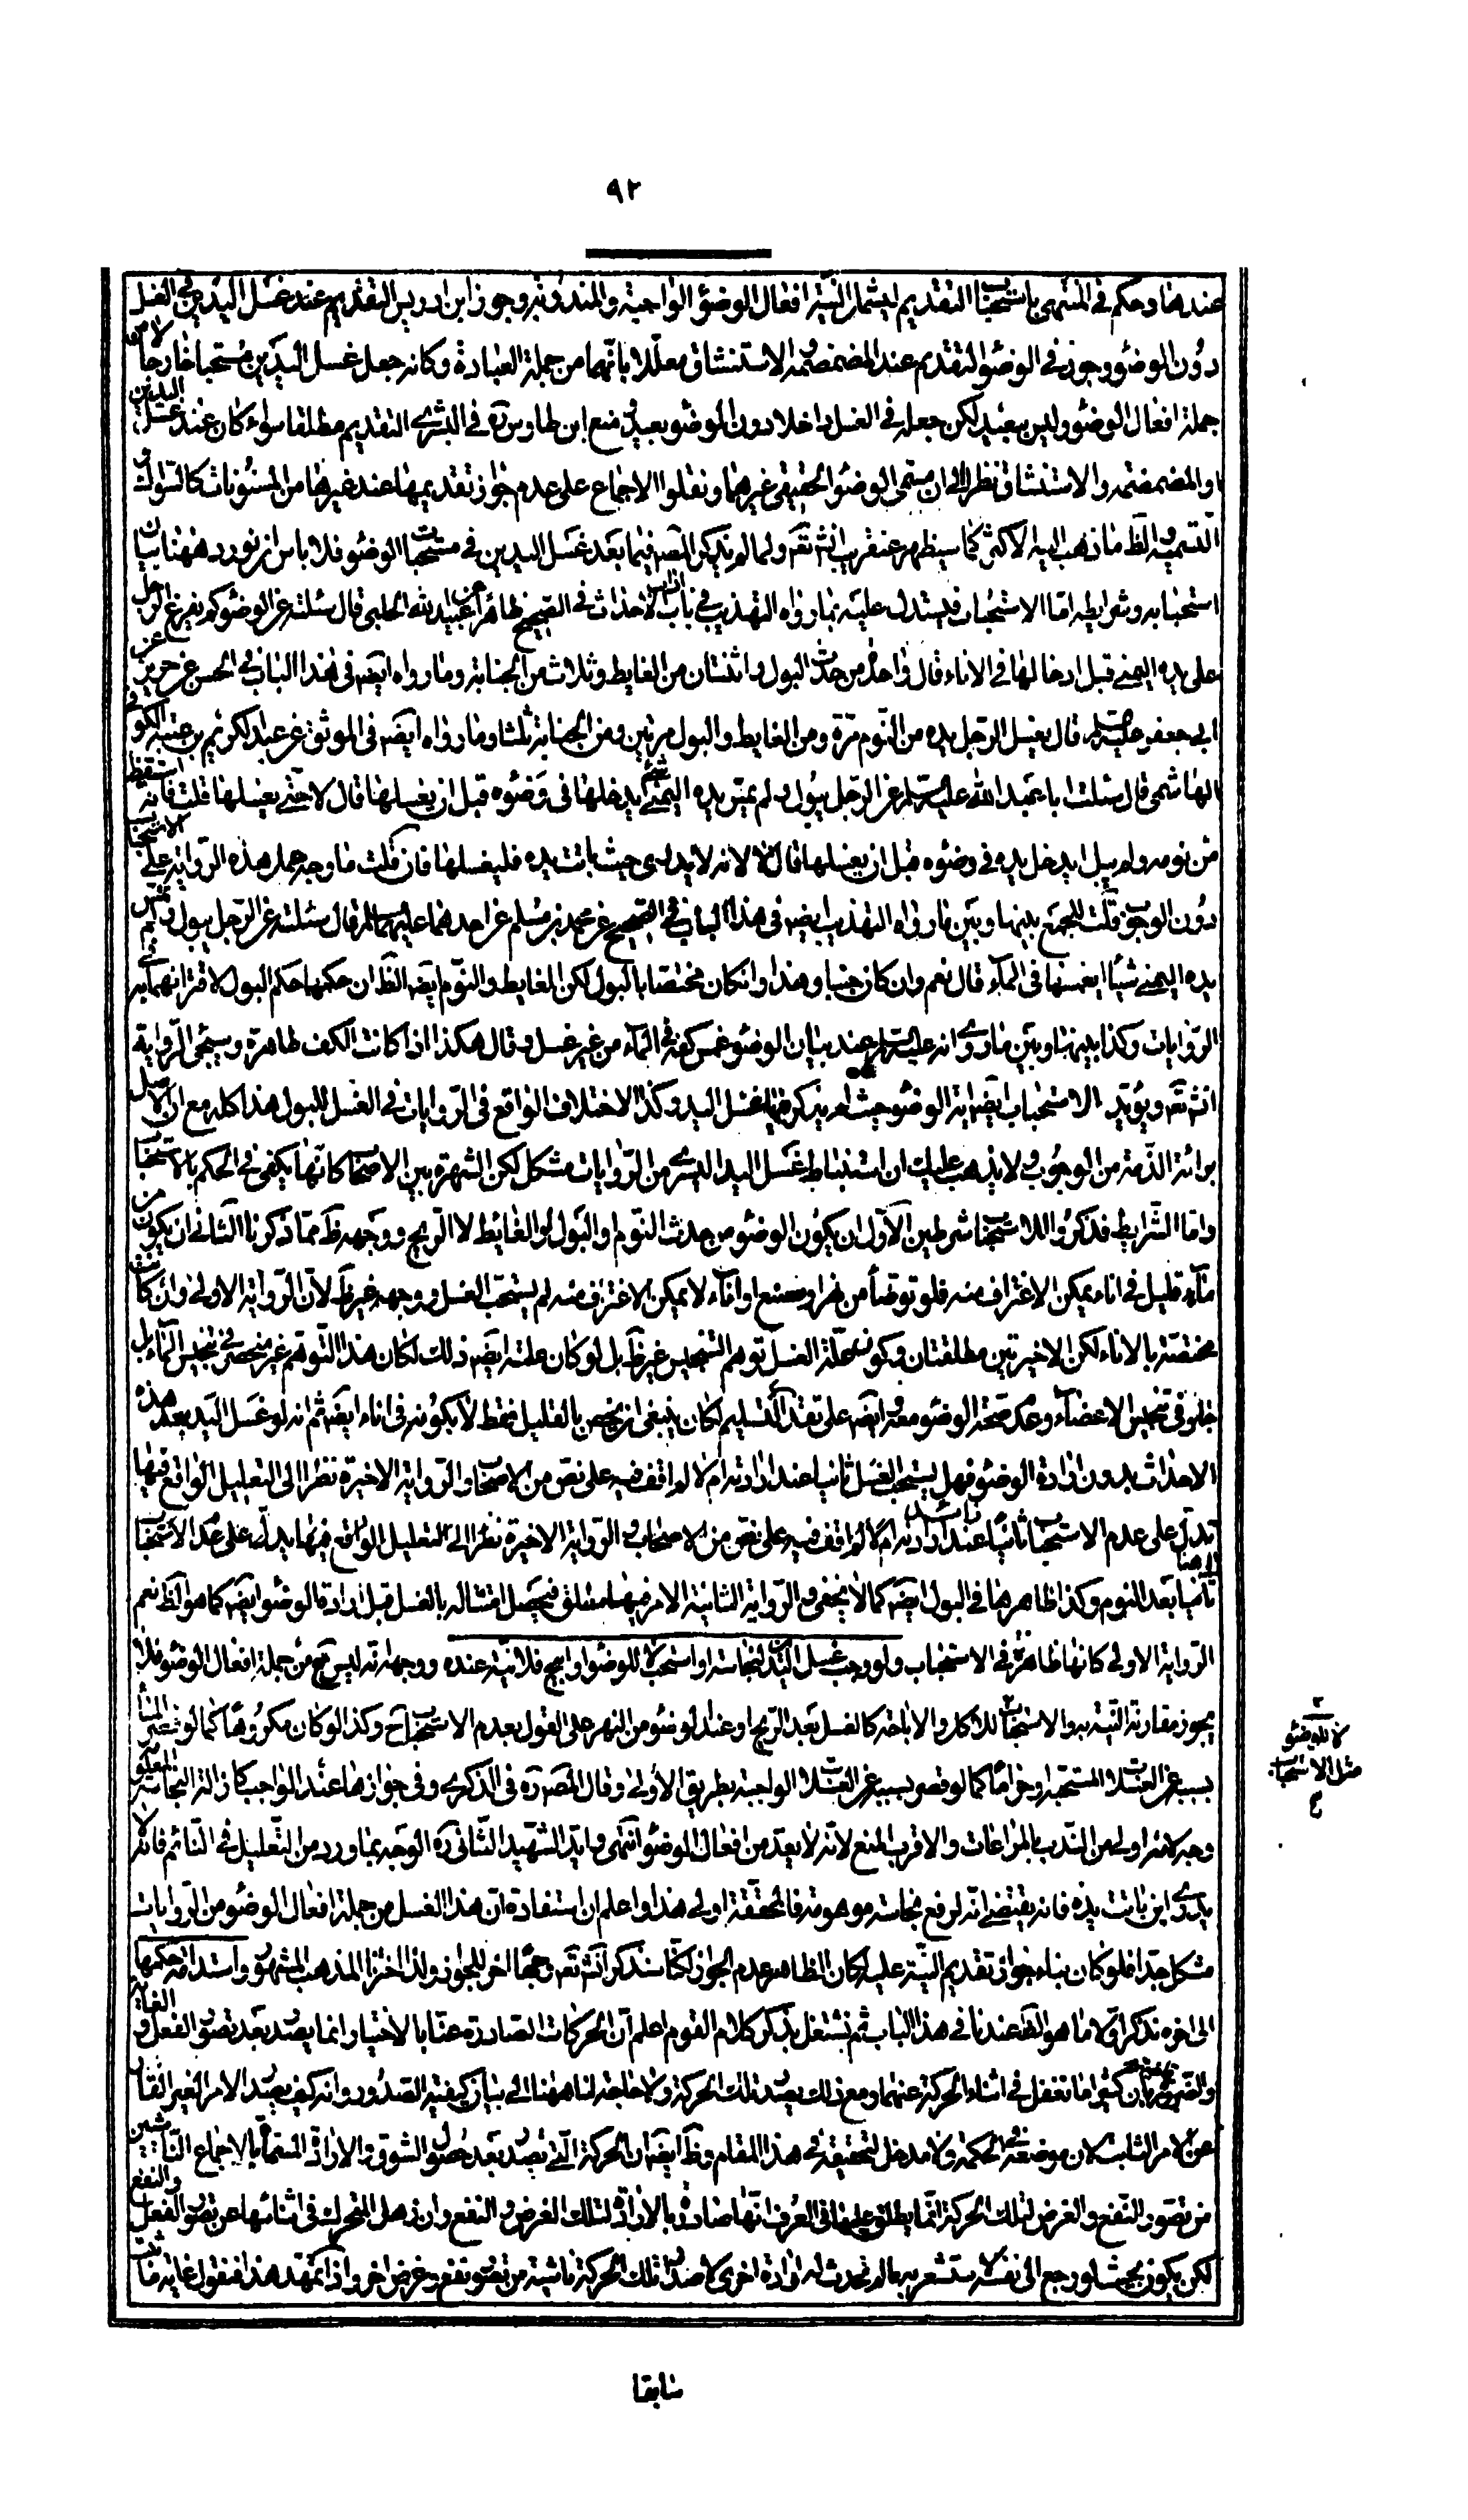 ٩٢
عندهما وحكم في المنتهى باستحباب التقديم ليشمل النية افعال الوضوء الواجبة والمندوبة وجوز ابن ادريس التقديم عند غسل اليدين في الغسل
دون الوضوء وجوز في الوضوء التقديم عند المضمضة والاستنشاق معللا بانهما من جملة العبادة وكانه جعل غسل اليدين مستحبا خارجا لا من
جملة افعال الوضوء وليس ببعيد لكن جعله في الغسل داخلا دون الوضوء بعيد ومنع ابن طاوس ره في البشرى التقديم مطلقا سواء كان عند غسل اليدين
او المضمضة والاستنشاق نظرا الى ان مسمى الوضوء الحقيقي غيرهما ونقلوا الاجماع على عدم جواز تقديمها عند غيرها من المسنونات كالسواك و
التسمية والظ ما ذهب اليه الاكثر كما سيظهر عنقريب انشتعم ولما لم يذكر المصه فيما بعد غسل اليدين في مستحبات الوضوء فلا باس ان نورد هيهنا بيان
استحبابه وشرايطه اما الاستحباب فيستدل عليه بما رواه التهذيب في باب اداب الاحداث في الصحيح ظاهرا عن عبيد الله الحلبي قال سئلته عن الوضوء كم يفرغ الرجل
على يده اليمنى قبل ادخالها في الاناء قال واحدة من حدث البول واثنتان من الغايط وثلاث من الجنابة وما رواه ايضه في هذا الباب في الحسن عن حريز عن
ابي جعفر عليه السلم قال يغسل الرجل يده من النوم مرة ومن الغايط والبول مرتين ومن الجنابة ثلثا وما رواه ايضه في الموثق عن عبد الكريم بن عتبة الكوفي
الهاشمي قال سئلت ابا عبد الله عليه السلم عن الرجل يبول ولم يمس يده اليمنى شئ ايدخلها في وضوئه قبل ان يغسلها قال لا حتى يغسلها قلت فانه استيقظ
من نومه ولم يبل ايدخل يده في وضوئه قبل ان يغسلها قال لا لانه لا يدري حيث باتت يده فليغسلها فان قلت ما وجه حمل هذه الرواية على الاستحباب
دون الوجوب قلت للجمع بينها وبين ما رواه التهذيب ايضه في هذا الباب في الصحيح عن محمد بن مسلم عن احدهما عليهما السلم قال سئلته عن الرجل يبول ولم تمس
يده اليمنى شيئا ايغمسها في الماء قال نعم وان كان جنبا وهذا وانكان مختصا بالبول لكن الغايط والنوم ايضه الظ ان حكمها حكم البول لاقترانهما به في
الروايات وكذا بينها وبين ما روى انه عليه السلم عند بيان الوضوء غمس كفه في الماء من غير غسل وقال هكذا اذا كانت الكف طاهرة وسيجئ الرواية
انشتعم ويؤيد الاستحباب ايضه اية الوضوء حيث لم يذكر فيها غسل اليد وكذا الاختلاف الواقع في الروايات في الغسل للبول هذا كله مع ان الاصل
برائة الذمة من الوجوب ولا يذهب عليك ان استنباط غسل اليد اليسرى من الروايات مشكل لكن الشهرة بين الاصحاب كانها يكفي في الحكم بالاستحباب
واما الشرايط فذكروا للاستحباب شرطين الاول ان يكون الوضوء من حدث النوم او البول او الغايط لا الريح ووجهه ظ مما ذكرنا الثاني ان يكون من
ماء قليل في اناء يمكن الاغتراف منه فلو توضأ من نهر او مصنع او اناء لا يمكن الاغتراف منه لم يستحب الغسل ووجهه غير ظ لان الرواية الاولى وان كانت
مختصة بالاناء لكن الاخيرتين مطلقتان وكون علة الغسل توهم التنجيس غير ظ بل لو كان علته ايضه ذلك لكان هذا التوهم غير منحصر في تنجيس الماء بل
جار في تنجيس الاعضاء وعدم صحة الوضوء معه ايضه على تقدير التسليم لكان ينبغي ان يخصص بالقليل فقط لا بكونه في اناء ايضه ثم انه لو غسل اليد بعد هذه
الاحداث بدون ارادة الوضوء فهل يستحب الغسل ثانيا عند ارادته ام لا لم اقف فيه على نص من الاصحاب والرواية الاخيرة نظرا الى التعليل الواقع فيها
تدل على عدم الاستحباب ثانيا عند ارادته ام لا لم اقف فيه على نص من الاصحاب والرواية الاخيرة نظرا الى التعليل الواقع فيها يدل على عدم الاستحباب
ثانيا بعد النوم وكذا ظاهرها في البول ايضه كما لا يخفى والرواية الثانية الامر فيها مطلق فيحصل امتثاله بالغسل قبل ارادة الوضوء ايضه كما هو الظ نعم
الرواية الاولى كانها ظاهرة في الاستحباب ولو وجب غسل اليدين لنجاسة او استحب لا للوضوء او ابيح فلا نية عنده ووجهه انه ليس ح من جملة افعال الوضوء فلا
يجوز مقارنة النية به والاستحباب للاكل والاباحة كالغسل بعد الريح او عند الوضوء من النهر على القول بعدم الاستحباب ح وكذا لو كان مكروها كما لو قصر الماء
بسببه عن الغسلات المستحبة او حراما كما لو قصر بسببه عن الغسلات الواجبة بطريق الاولى وقال المصره في الذكرى وفي جوازها عند الواجب كازالة النجاسة المعلومة
وجه لانه اولى من الندب بالمراعات والاقرب المنع لانه لا يعد من افعال الوضوء انتهى وايد الشهيد الثاني ره الوجه بما ورد من التعليل في النائم فانه لا
يدرى اين باتت يده فانه يقتضي انه لرفع نجاسة موهومة فالمحققة اولى هذا واعلم ان استفادة ان هذا الغسل من جملة افعال الوضوء من الروايات
مشكل جدا فلو كان بناء جواز تقديم النية عليه لكان الظاهر عدم الجواز لكنا سنذكر انشتعم وجها اخر للجواز ولذا اخترنا المذهب المشهور واستدامة حكمها
الى اخره نذكر اولا ما هو الظ عندنا في هذا الباب ثم نشتغل بذكر كلام القوم اعلم ان الحركات الصادرة عنا بالاختيار انما يصدر بعد تصور الفعل والغاية
كثيرا ما نغفل في اثناء الحركة عنهما ومع ذلك يصدر تلك الحركة ولا حاجة لنا هيهنا الى بيان كيفية الصدور وانه كيف يصدر الامر الغير القار
عن الامر الثابت لان موضعه في الحكمة ولا مدخل لتحقيقه في هذا المقام وظ ايضه ان الحركة التي تصدر بعد حصول الشوق والارادة المسماة بالاجماع الناشئين
من تصور النفع والغرض لتلك الحركة انما يطلق عليها في العرف انها صادرة بالارادة لتلك الغرض والنفع وان ذهل المتحرك في اثنائها عن تصور الفعل والنفع
لكن يكون بحيث لو رجع الى نفسه لاستشعر به ما لم تحدث له ارادة اخرى لاصدار تلك الحركة ناشية من تصور نفع وغرض اخر واذا تمهد هذا فنقول غاية ما ثبت
لا للوضوء
مثل الاستحباب
سابقا